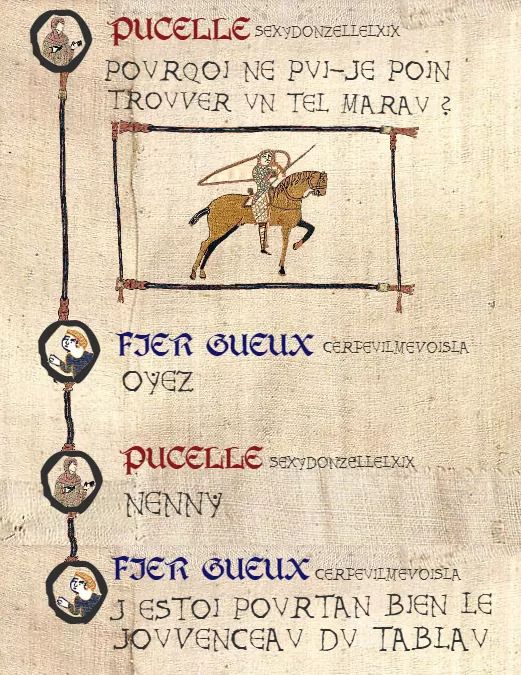 PUCELLE SEXYDONZELLELXIX
POVRQOI NE PVI-JE POIN
TROVVER VN TEL MARAV ?
FIER GUEUX CERFEVILMEVOISLA
OYEZ
PUCELLE SEXYDONZELLELXIX
NENNY
FIER GUEUX CERFEVILMEVOISLA
J ESTOI POVRTAN BIEN LE
JOVVENCEAV DV TABLAV